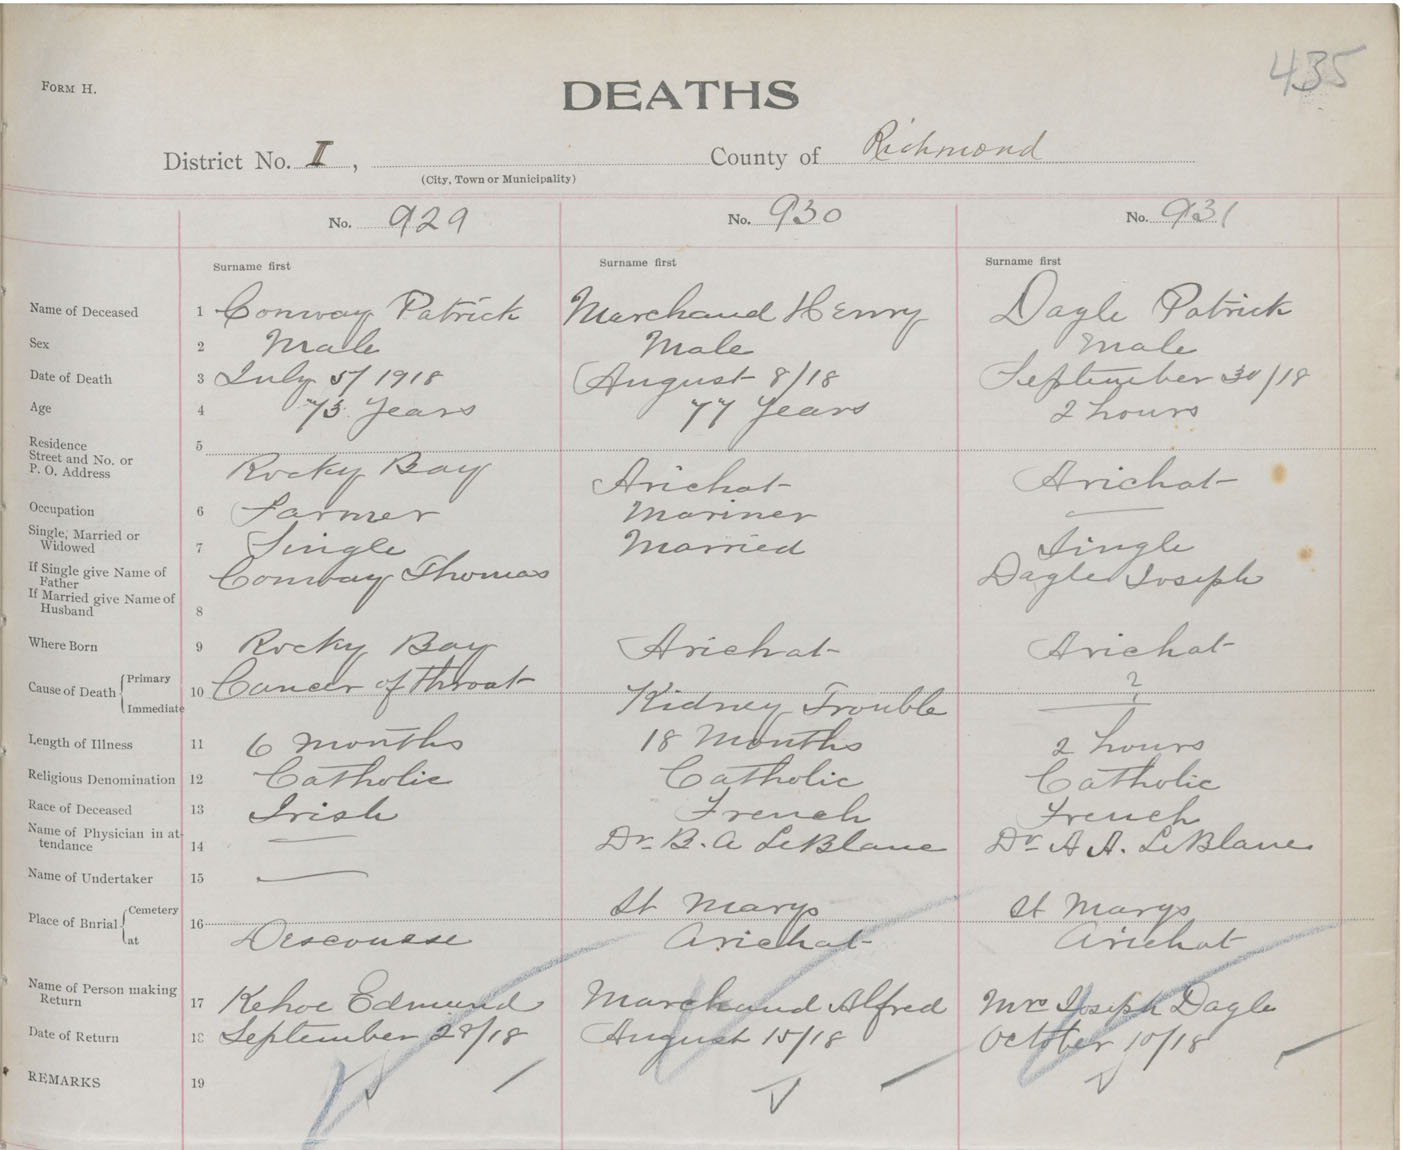 435
FORM H.
DEATHS
District No. I , County of Richmond
(City, Town or Municipality)
No. 929 No. 930 No. 931
Surname first Surname first Surname first
Name of Deceased 1 Conway Patrick Marchand Henry Dagle Patrick
Sex 2 Male Male Male
Date of Death 3 July 5/1918 August 8/18 September 30/18
Age 4 73 Years 77 Years 2 hours
Residence 5
Street and No. or
P. O. Address Rocky Bay Arichat Arichat
Occupation 6 Farmer Mariner —
Single, Married or
Widowed 7 Single Married Single
If Single give Name of
Father Conway Thomas Dagle Joseph
If Married give Name of
Husband 8
Where Born 9 Rocky Bay Arichat Arichat
Cause of Death Primary 10 Cancer of throat ?
Immediate Kidney Trouble —
Length of Illness 11 6 months 18 Months 2 hours
Religious Denomination 12 Catholic Catholic Catholic
Race of Deceased 13 Irish French French
Name of Physician in at-
tendance 14 — Dr B. A LeBlanc Dr A A. LeBlanc
Name of Undertaker 15 —
Place of Burial Cemetery 16 St Marys St Marys
at Descousse Arichat Arichat
Name of Person making
Return 17 Kehoe Edmund Marchand Alfred Mrs Joseph Dagle
Date of Return 18 September 28/18 August 15/18 October 10/18
REMARKS 19